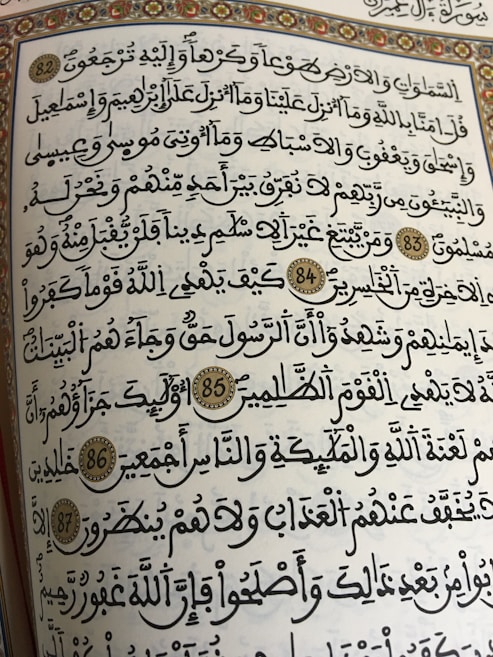 سُورَةُ ءَالِ عِمْرَانَ
اِلسَّمَٰوَٰتِ وَالَارْضِ طَوْعاً وَكَرْهاً وَإِلَيْهِ تُرْجَعُونَ 82
قُلَ اٰمَنَّا بِاللَّهِ وَمَا أُنزِلَ عَلَيْنَا وَمَا أُنزِلَ عَلَىٰ إِبْرَٰهِيمَ وَإِسْمَٰعِيلَ
وَإِسْحَٰقَ وَيَعْقُوبَ وَالَاسْبَاطِ وَمَا أُوتِيَ مُوسِىٰ وَعِيسِىٰ
وَالنَّبِيـُٔونَ مِن رَّبِّهِمْ لَا نُفَرِّقُ بَيْنَ أَحَدٍ مِّنْهُمْ وَنَحْنُ لَهُۥ
مُسْلِمُونَ 83 وَمَنْ يَّبْتَغِ غَيْرَ اَلِاسْلَٰمِ دِيناً فَلَنْ يُّقْبَلَ مِنْهُ وَهُوَ
اِلَاخِرَةِ مِنَ اَلْخَٰسِرِينَ 84 كَيْفَ يَهْدِي اِللَّهُ قَوْماً كَفَرُواْ
إِيمَٰنِهِمْ وَشَهِدُوٓاْ أَنَّ اَلرَّسُولَ حَقٌّ وَجَآءَهُمُ اُلْبَيِّنَٰتُ
لَا يَهْدِي اِلْقَوْمَ اَلظَّٰلِمِينَ 85 أُوْلَٰٓئِكَ جَزَآؤُهُمُۥٓ أَنَّ
لَعْنَةَ اَللَّهِ وَالْمَلَٰٓئِكَةِ وَالنَّاسِ أَجْمَعِينَ 86 خَٰلِدِينَ
لَا يُخَفَّفُ عَنْهُمُ اُلْعَذَابُ وَلَا هُمْ يُنظَرُونَ 87 إِلَّا
مِنۢ بَعْدِ ذَٰلِكَ وَأَصْلَحُواْ فَإِنَّ اَللَّهَ غَفُورٌ رَّحِيمٌ